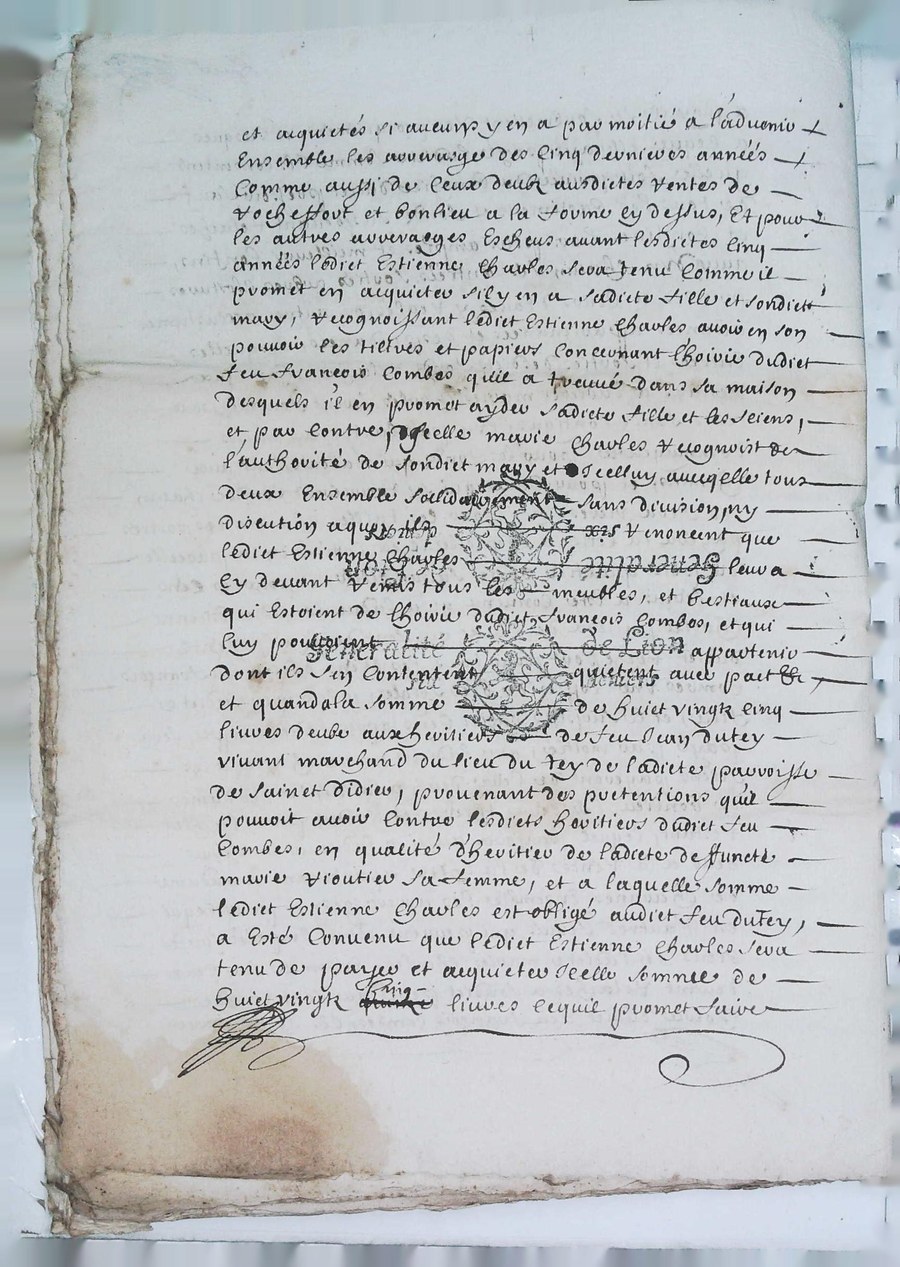 et acquietés si aucuns y en a par moitié a l'advenir
Ensemble les arrerasge des Cinq dernieres années
Comme aussi de Ceux deubz ausdictes Rentes de
Rocheffort et bonlieu a la forme Cy dessus, Et pour
les autres arrerasges Escheus avant lesdictes Cinq
années ledict Estienne Charles sera tenu Comme il
promet en acquieter s'il y en a sadicte fille et sondict
mary, Recognoissant ledict Estienne Charles avoir en son
pouvoir les tiltres et papiers Concernant l'hoirie dudict
feu francois Combes qu'il a treuvé dans sa maison
desquels il en promet ayder sadicte fille et les siens,
et par Contre, Icelle marie Charles Recognoist de
l'authorité de sondict mary et Icelluy avecqelle tous
deux Ensemble sollidairement sans division, ny
discution a quoy ils Renoncent que
ledict Estienne Charles leur a
Cy devant Remis tous les meubles, et bestiaux
qui Estoient de l'hoirie dudict francois Combes, et qui
luy pouvoient appartenir
Generalité de Lion
dont ils s'en Contentent quictent avec pact &c,
et quand a la somme de huict vingtz Cinq
livres deube aux heritiers de feu Jean dutey
vivant marchand du lieu du tey de ladicte parroisse
de sainct Didier, provenant des pretentions qu'il
pouvoit avoir Contre lesdicts heritiers dudict feu
Combes, en qualité d'heritier de ladicte deffuncte
marie Rioutier sa femme, et a laquelle somme
ledict Estienne Charles est obligé audict feu dutey,
a Esté Convenu que ledict Estienne Charles sera
tenu de payer et acquieter Icelle somme de
huict vingtz Cinq livres ce qu'il promet faire